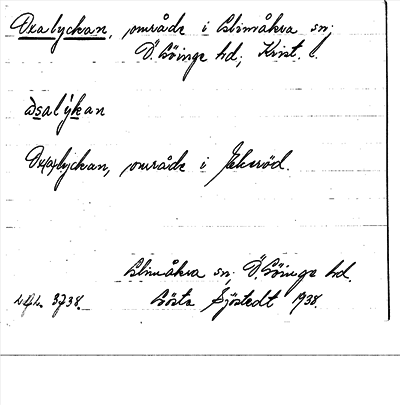 Oxalyckan, område i Glimåkra sn;
Ö. Göinge hd; Krist. l.
Oxalyckan, område i Ekeröd.
Glimåkra sn; Ö. Göinge hd.
3738. Gösta Sjöstedt 1938.